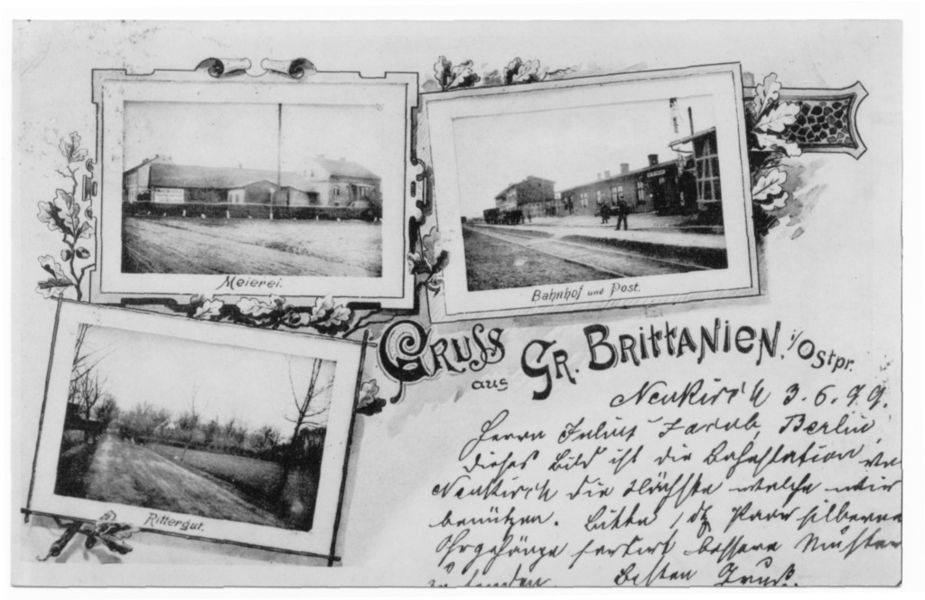 Meierei.
Bahnhof und Post.
Rittergut.
Gruss
aus Gr. Brittanien. i/Ostpr.
Neukirch 3.6.99.
Herrn Julius Jacob, Berlin
dieses Bild ist die Bahnstation von
Neukirch die nächste welche wir
benützen. Bitte Paar silberne
Ohrgehänge sortirt bessere Muster
zu senden besten Gruß.